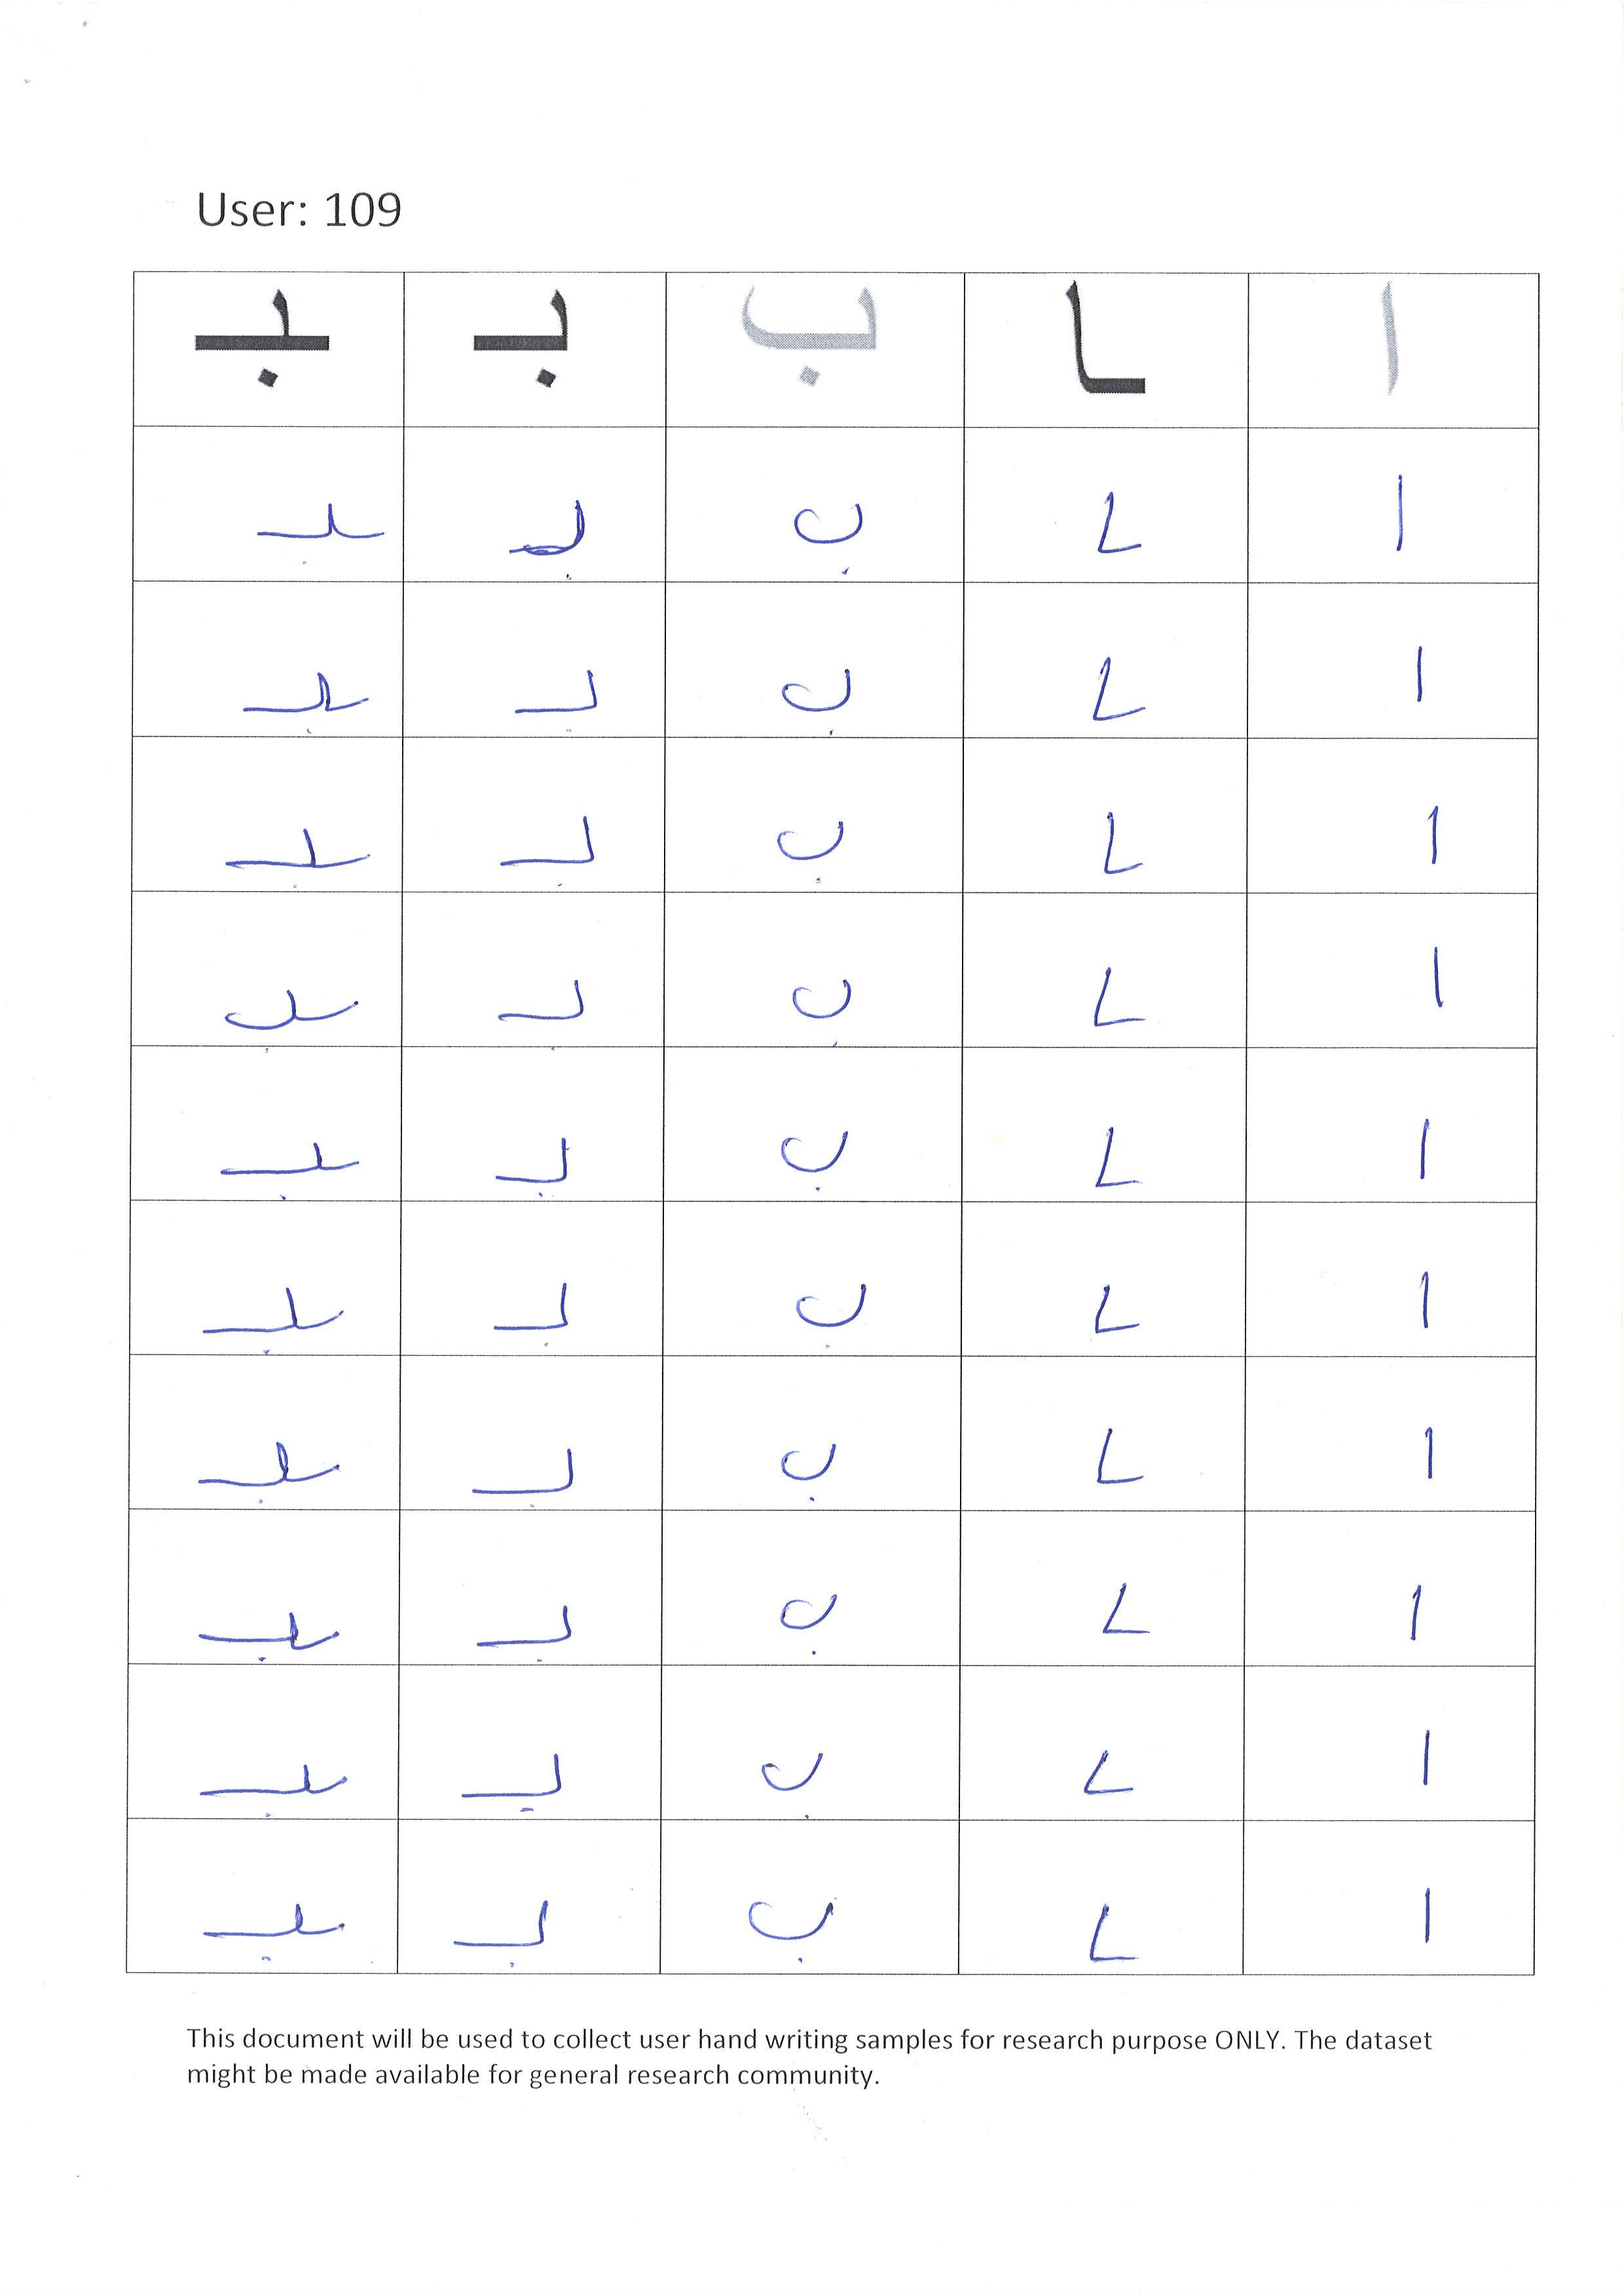 User: 109
ا ـا ب بـ ـبـ
ا ـا ب بـ ـبـ
ا ـا ب بـ ـبـ
ا ـا ب بـ ـبـ
ا ـا ب بـ ـبـ
ا ـا ب بـ ـبـ
ا ـا ب بـ ـبـ
ا ـا ب بـ ـبـ
ا ـا ب بـ ـبـ
ا ـا ب بـ ـبـ
ا ـا ب بـ ـبـ
This document will be used to collect user hand writing samples for research purpose ONLY. The dataset
might be made available for general research community.